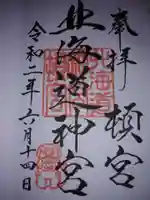 奉拝 頓宮
北海道神宮
令和二年六月十四日